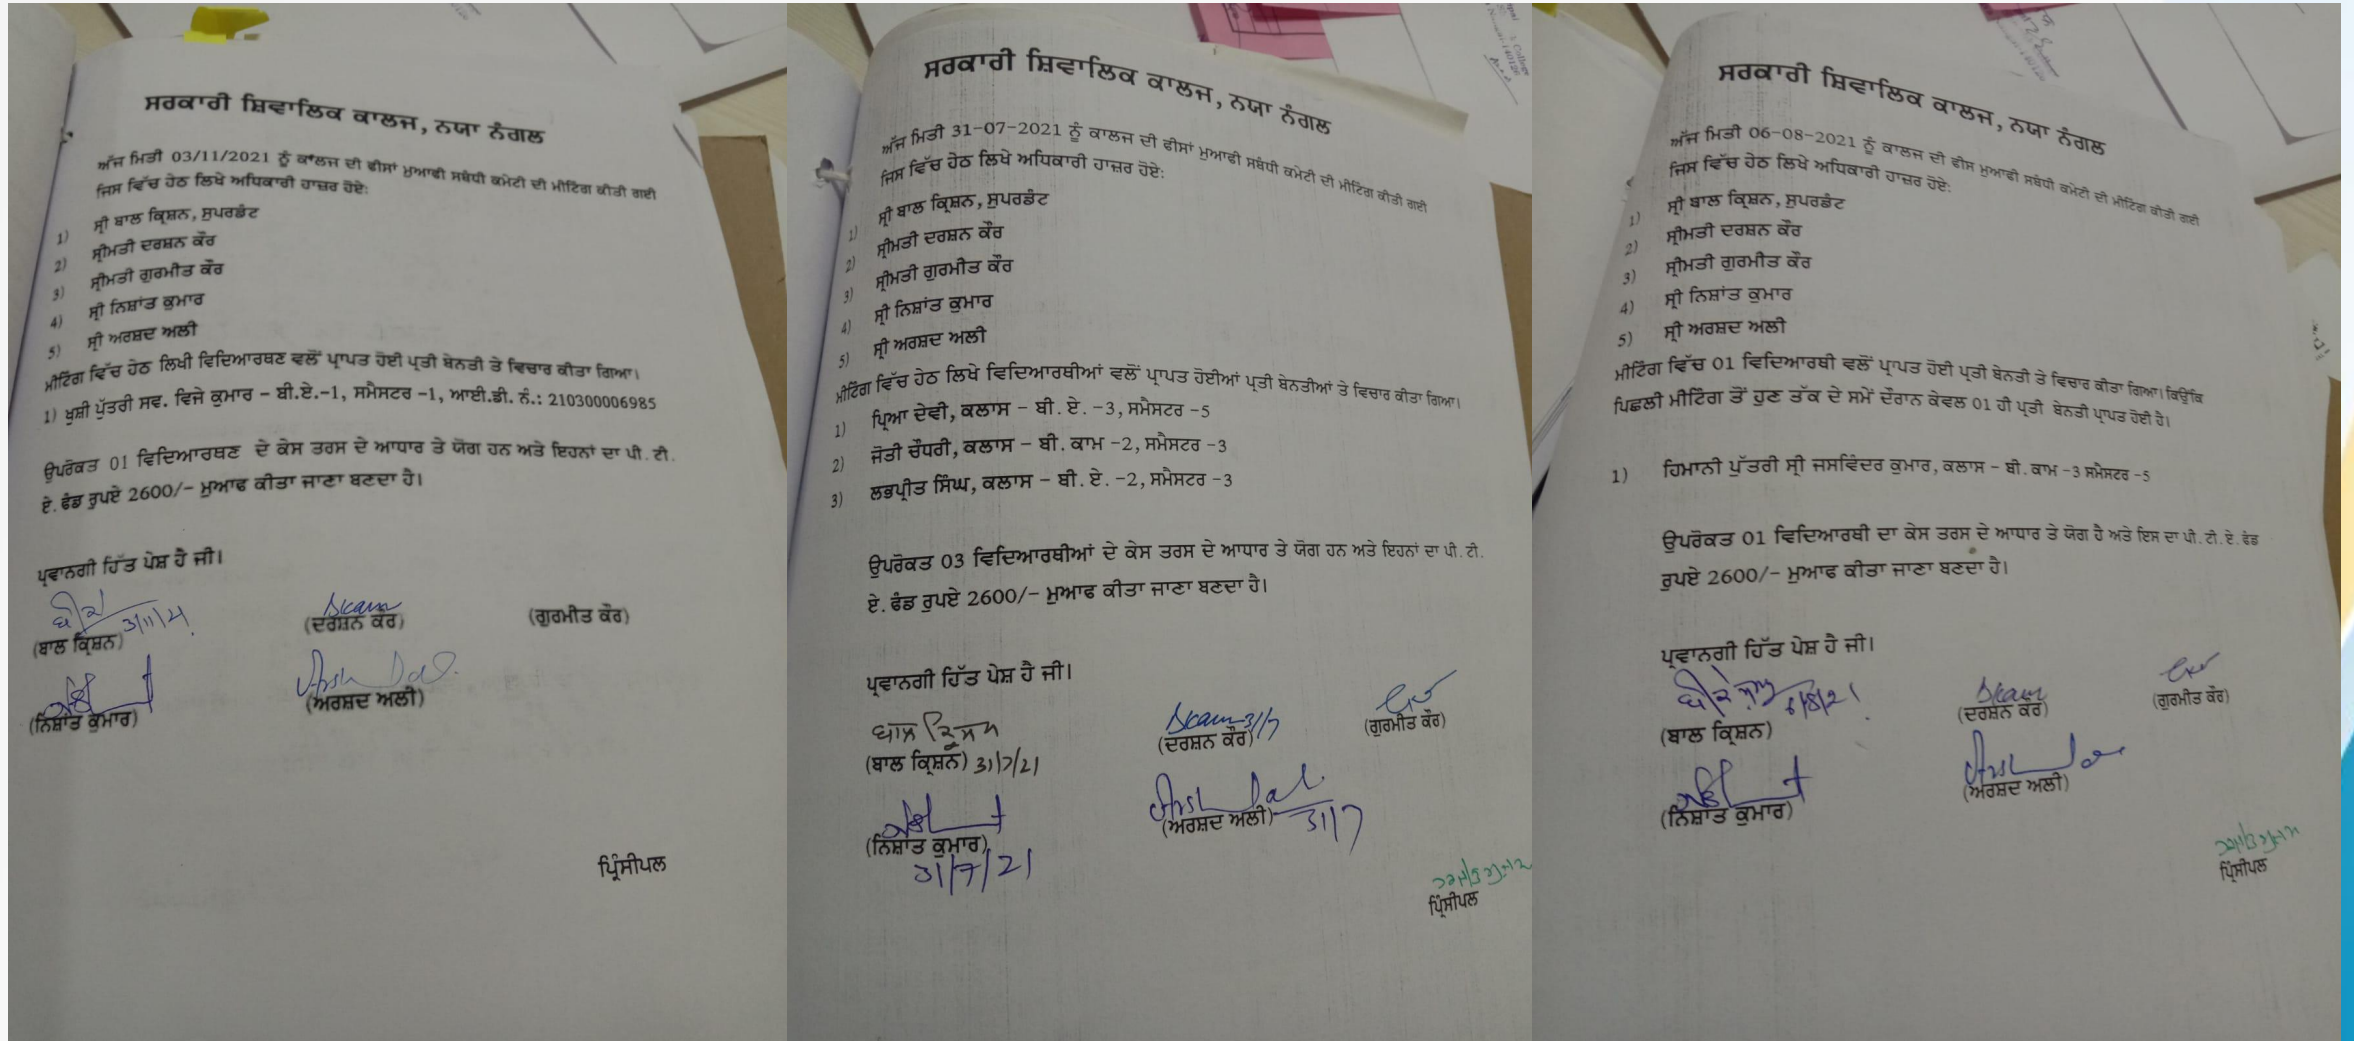 ਸਰਕਾਰੀ ਸ਼ਿਵਾਲਿਕ ਕਾਲਜ, ਨਯਾ ਨੰਗਲ
ਅੱਜ ਮਿਤੀ 03/11/2021 ਨੂੰ ਕਾਲਜ ਦੀ ਫੀਸਾਂ ਮੁਆਫੀ ਸਬੰਧੀ ਕਮੇਟੀ ਦੀ ਮੀਟਿੰਗ ਕੀਤੀ ਗਈ
ਜਿਸ ਵਿੱਚ ਹੇਠ ਲਿਖੇ ਅਧਿਕਾਰੀ ਹਾਜ਼ਰ ਹੋਏ:
1) ਸ੍ਰੀ ਬਾਲ ਕ੍ਰਿਸ਼ਨ, ਸੁਪਰਡੰਟ
2) ਸ੍ਰੀਮਤੀ ਦਰਸ਼ਨ ਕੌਰ
3) ਸ੍ਰੀਮਤੀ ਗੁਰਮੀਤ ਕੌਰ
4) ਸ੍ਰੀ ਨਿਸ਼ਾਂਤ ਕੁਮਾਰ
5) ਸ੍ਰੀ ਅਰਸ਼ਦ ਅਲੀ
ਮੀਟਿੰਗ ਵਿੱਚ ਹੇਠ ਲਿਖੀ ਵਿਦਿਆਰਥਣ ਵਲੋਂ ਪ੍ਰਾਪਤ ਹੋਈ ਪ੍ਰਤੀ ਬੇਨਤੀ ਤੇ ਵਿਚਾਰ ਕੀਤਾ ਗਿਆ।
1) ਖੁਸ਼ੀ ਪੁੱਤਰੀ ਸਵ. ਵਿਜੇ ਕੁਮਾਰ – ਬੀ.ਏ.-1, ਸਮੈਸਟਰ -1, ਆਈ.ਡੀ. ਨੰ.: 210300006985
ਉਪਰੋਕਤ 01 ਵਿਦਿਆਰਥਣ ਦੇ ਕੇਸ ਤਰਸ ਦੇ ਆਧਾਰ ਤੇ ਯੋਗ ਹਨ ਅਤੇ ਇਹਨਾਂ ਦਾ ਪੀ.ਟੀ.
ਏ. ਫੰਡ ਰੁਪਏ 2600/- ਮੁਆਫ ਕੀਤਾ ਜਾਣਾ ਬਣਦਾ ਹੈ।
ਪ੍ਰਵਾਨਗੀ ਹਿੱਤ ਪੇਸ਼ ਹੈ ਜੀ।
3/11/21
(ਬਾਲ ਕ੍ਰਿਸ਼ਨ) (ਦਰਸ਼ਨ ਕੌਰ) (ਗੁਰਮੀਤ ਕੌਰ)
(ਨਿਸ਼ਾਂਤ ਕੁਮਾਰ) (ਅਰਸ਼ਦ ਅਲੀ)
ਪ੍ਰਿੰਸੀਪਲ
ਸਰਕਾਰੀ ਸ਼ਿਵਾਲਿਕ ਕਾਲਜ, ਨਯਾ ਨੰਗਲ
ਅੱਜ ਮਿਤੀ 31-07-2021 ਨੂੰ ਕਾਲਜ ਦੀ ਫੀਸਾਂ ਮੁਆਫੀ ਸਬੰਧੀ ਕਮੇਟੀ ਦੀ ਮੀਟਿੰਗ ਕੀਤੀ ਗਈ
ਜਿਸ ਵਿੱਚ ਹੇਠ ਲਿਖੇ ਅਧਿਕਾਰੀ ਹਾਜ਼ਰ ਹੋਏ:
1) ਸ੍ਰੀ ਬਾਲ ਕ੍ਰਿਸ਼ਨ, ਸੁਪਰਡੰਟ
2) ਸ੍ਰੀਮਤੀ ਦਰਸ਼ਨ ਕੌਰ
3) ਸ੍ਰੀਮਤੀ ਗੁਰਮੀਤ ਕੌਰ
4) ਸ੍ਰੀ ਨਿਸ਼ਾਂਤ ਕੁਮਾਰ
5) ਸ੍ਰੀ ਅਰਸ਼ਦ ਅਲੀ
ਮੀਟਿੰਗ ਵਿੱਚ ਹੇਠ ਲਿਖੇ ਵਿਦਿਆਰਥੀਆਂ ਵਲੋਂ ਪ੍ਰਾਪਤ ਹੋਈਆਂ ਪ੍ਰਤੀ ਬੇਨਤੀਆਂ ਤੇ ਵਿਚਾਰ ਕੀਤਾ ਗਿਆ।
1) ਪ੍ਰਿਆ ਦੇਵੀ, ਕਲਾਸ – ਬੀ. ਏ. -3, ਸਮੈਸਟਰ -5
2) ਜੋਤੀ ਚੌਧਰੀ, ਕਲਾਸ – ਬੀ. ਕਾਮ -2, ਸਮੈਸਟਰ -3
3) ਲਭਪ੍ਰੀਤ ਸਿੰਘ, ਕਲਾਸ – ਬੀ. ਏ. -2, ਸਮੈਸਟਰ -3
ਉਪਰੋਕਤ 03 ਵਿਦਿਆਰਥੀਆਂ ਦੇ ਕੇਸ ਤਰਸ ਦੇ ਆਧਾਰ ਤੇ ਯੋਗ ਹਨ ਅਤੇ ਇਹਨਾਂ ਦਾ ਪੀ.ਟੀ.
ਏ. ਫੰਡ ਰੁਪਏ 2600/- ਮੁਆਫ ਕੀਤਾ ਜਾਣਾ ਬਣਦਾ ਹੈ।
ਪ੍ਰਵਾਨਗੀ ਹਿੱਤ ਪੇਸ਼ ਹੈ ਜੀ।
31/7
(ਬਾਲ ਕ੍ਰਿਸ਼ਨ) 31/7/21 (ਦਰਸ਼ਨ ਕੌਰ) (ਗੁਰਮੀਤ ਕੌਰ)
(ਨਿਸ਼ਾਂਤ ਕੁਮਾਰ) (ਅਰਸ਼ਦ ਅਲੀ) 31/7
31/7/21
ਪ੍ਰਿੰਸੀਪਲ
ਸਰਕਾਰੀ ਸ਼ਿਵਾਲਿਕ ਕਾਲਜ, ਨਯਾ ਨੰਗਲ
ਅੱਜ ਮਿਤੀ 06-08-2021 ਨੂੰ ਕਾਲਜ ਦੀ ਫੀਸ ਮੁਆਫੀ ਸਬੰਧੀ ਕਮੇਟੀ ਦੀ ਮੀਟਿੰਗ ਕੀਤੀ ਗਈ
ਜਿਸ ਵਿੱਚ ਹੇਠ ਲਿਖੇ ਅਧਿਕਾਰੀ ਹਾਜ਼ਰ ਹੋਏ:
1) ਸ੍ਰੀ ਬਾਲ ਕ੍ਰਿਸ਼ਨ, ਸੁਪਰਡੰਟ
2) ਸ੍ਰੀਮਤੀ ਦਰਸ਼ਨ ਕੌਰ
3) ਸ੍ਰੀਮਤੀ ਗੁਰਮੀਤ ਕੌਰ
4) ਸ੍ਰੀ ਨਿਸ਼ਾਂਤ ਕੁਮਾਰ
5) ਸ੍ਰੀ ਅਰਸ਼ਦ ਅਲੀ
ਮੀਟਿੰਗ ਵਿੱਚ 01 ਵਿਦਿਆਰਥੀ ਵਲੋਂ ਪ੍ਰਾਪਤ ਹੋਈ ਪ੍ਰਤੀ ਬੇਨਤੀ ਤੇ ਵਿਚਾਰ ਕੀਤਾ ਗਿਆ।ਕਿਉਂਕਿ
ਪਿਛਲੀ ਮੀਟਿੰਗ ਤੋਂ ਹੁਣ ਤੱਕ ਦੇ ਸਮੇਂ ਦੌਰਾਨ ਕੇਵਲ 01 ਹੀ ਪ੍ਰਤੀ ਬੇਨਤੀ ਪ੍ਰਾਪਤ ਹੋਈ ਹੈ।
1) ਹਿਮਾਨੀ ਪੁੱਤਰੀ ਸ੍ਰੀ ਜਸਵਿੰਦਰ ਕੁਮਾਰ, ਕਲਾਸ – ਬੀ. ਕਾਮ -3 ਸਮੈਸਟਰ -5
ਉਪਰੋਕਤ 01 ਵਿਦਿਆਰਥੀ ਦਾ ਕੇਸ ਤਰਸ ਦੇ ਆਧਾਰ ਤੇ ਯੋਗ ਹੈ ਅਤੇ ਇਸ ਦਾ ਪੀ.ਟੀ.ਏ. ਫੰਡ
ਰੁਪਏ 2600/- ਮੁਆਫ ਕੀਤਾ ਜਾਣਾ ਬਣਦਾ ਹੈ।
ਪ੍ਰਵਾਨਗੀ ਹਿੱਤ ਪੇਸ਼ ਹੈ ਜੀ।
6/8/21
(ਬਾਲ ਕ੍ਰਿਸ਼ਨ) (ਦਰਸ਼ਨ ਕੌਰ) (ਗੁਰਮੀਤ ਕੌਰ)
(ਨਿਸ਼ਾਂਤ ਕੁਮਾਰ) (ਅਰਸ਼ਦ ਅਲੀ)
ਪ੍ਰਿੰਸੀਪਲ